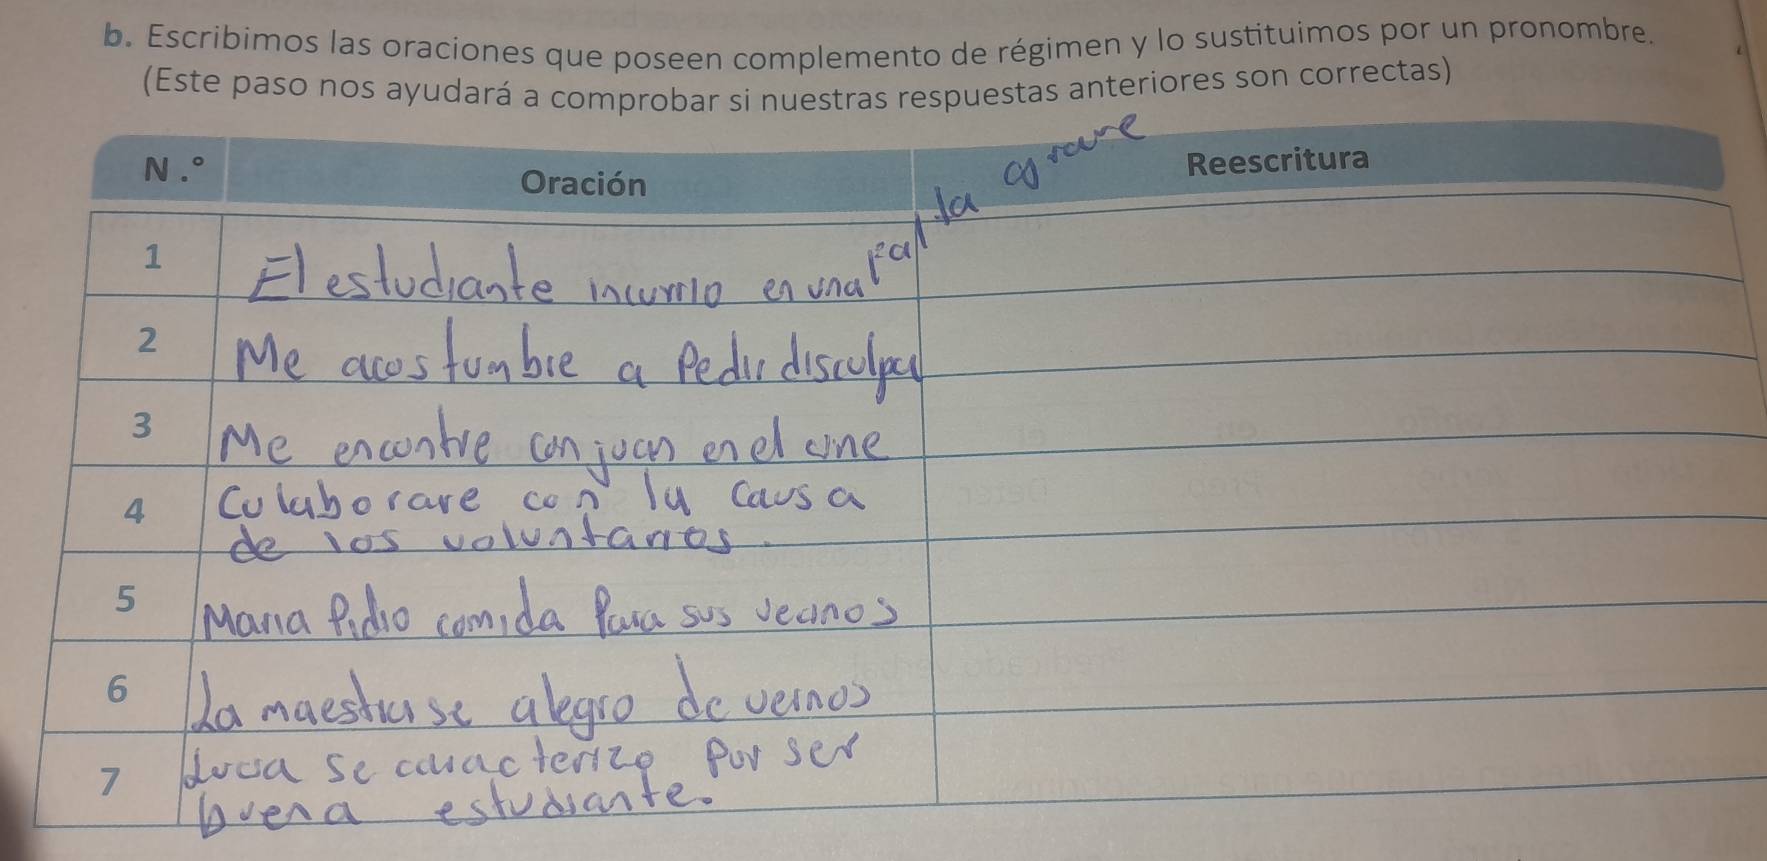 b. Escribimos las oraciones que poseen complemento de régimen y lo sustituimos por un pronombre.
(Este paso nos ayudará a comprobar si nuestras respuestas anteriores son correctas)
N.° Oración Reescritura
1 El estudiante incurrio en una falta grave
2 Me acostumbre a Pedir disculpa
3 Me encontre con juan en el cine
4 Colaborare con la causa
de los voluntarios.
5 Maria Pidio comida Para sus vecinos
6 La maestra se alegro de vernos
7 Lucia se caracterizo Por ser
buena estudiante.